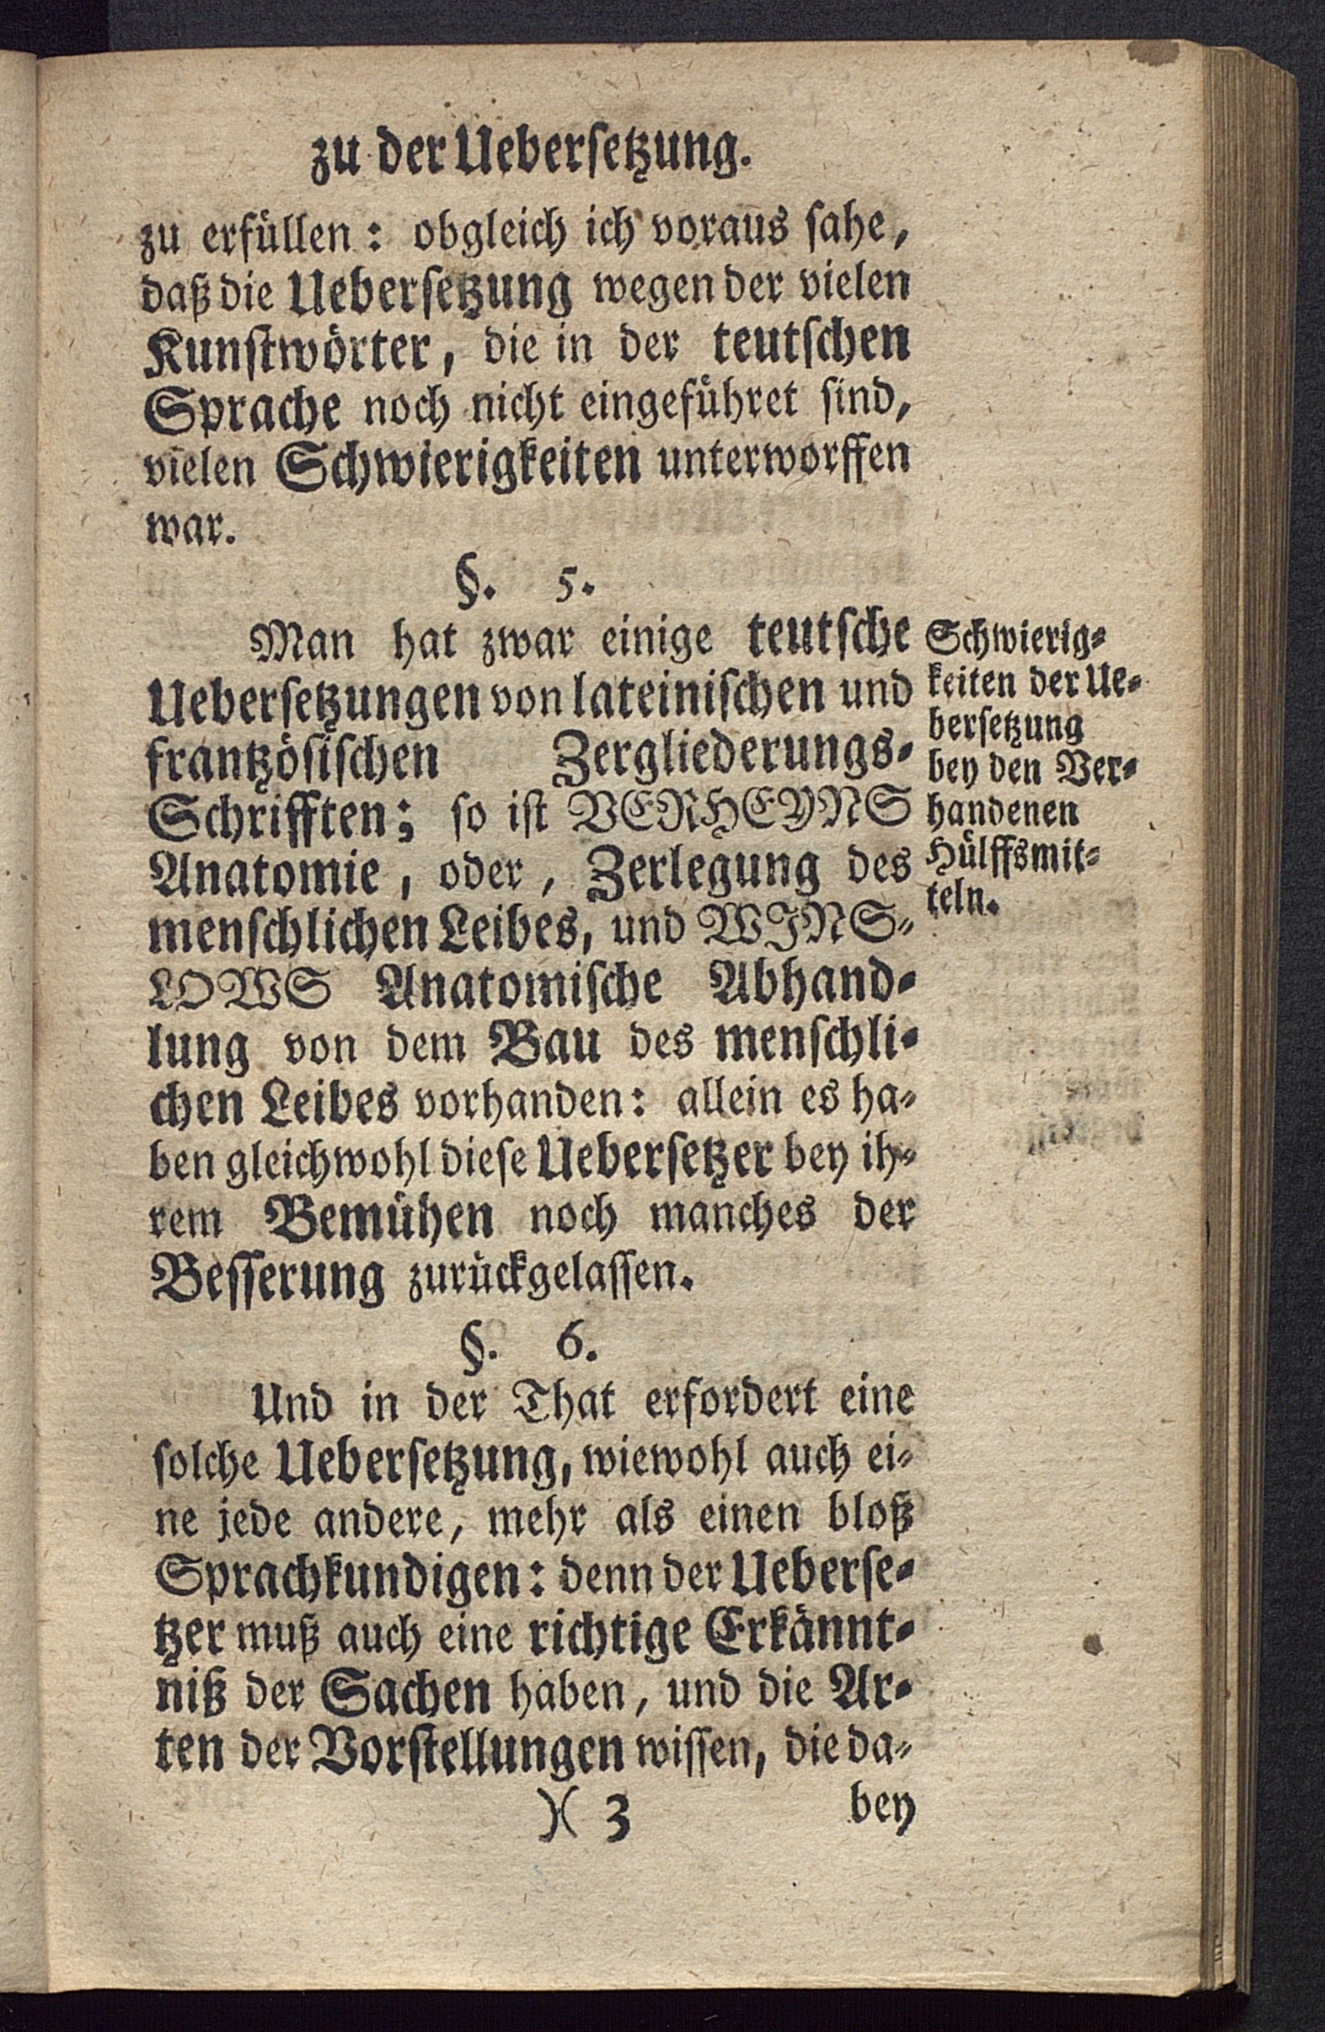 zu der Uebersetzung.
zu erfüllen: obgleich ich voraus sahe,
daß die Uebersetzung wegen der vielen
Kunstwörter, die in der teutschen
Sprache noch nicht eingeführet sind,
vielen Schwierigkeiten unterworffen
war.
§. 5.
Man hat zwar einige teutsche
Uebersetzungen von lateinischen und
frantzösischen Zergliederungs-
Schrifften; so ist VERHEYNS
Anatomie, oder, Zerlegung des
menschlichen Leibes, und WINS-
LOWS Anatomische Abhand-
lung von dem Bau des menschli-
chen Leibes vorhanden: allein es ha-
ben gleichwohl diese Uebersetzer bey ih-
rem Bemühen noch manches der
Besserung zurückgelassen.
Schwierig-
keiten der Ue-
bersetzung
bey den Ver-
handenen
Hülffsmit-
teln.
§. 6.
Und in der That erfordert eine
solche Uebersetzung, wiewohl auch ei-
ne jede andere, mehr als einen bloß
Sprachkundigen: denn der Ueberse-
tzer muß auch eine richtige Erkännt-
niß der Sachen haben, und die Ar-
ten der Vorstellungen wissen, die da-
)( 3 bey